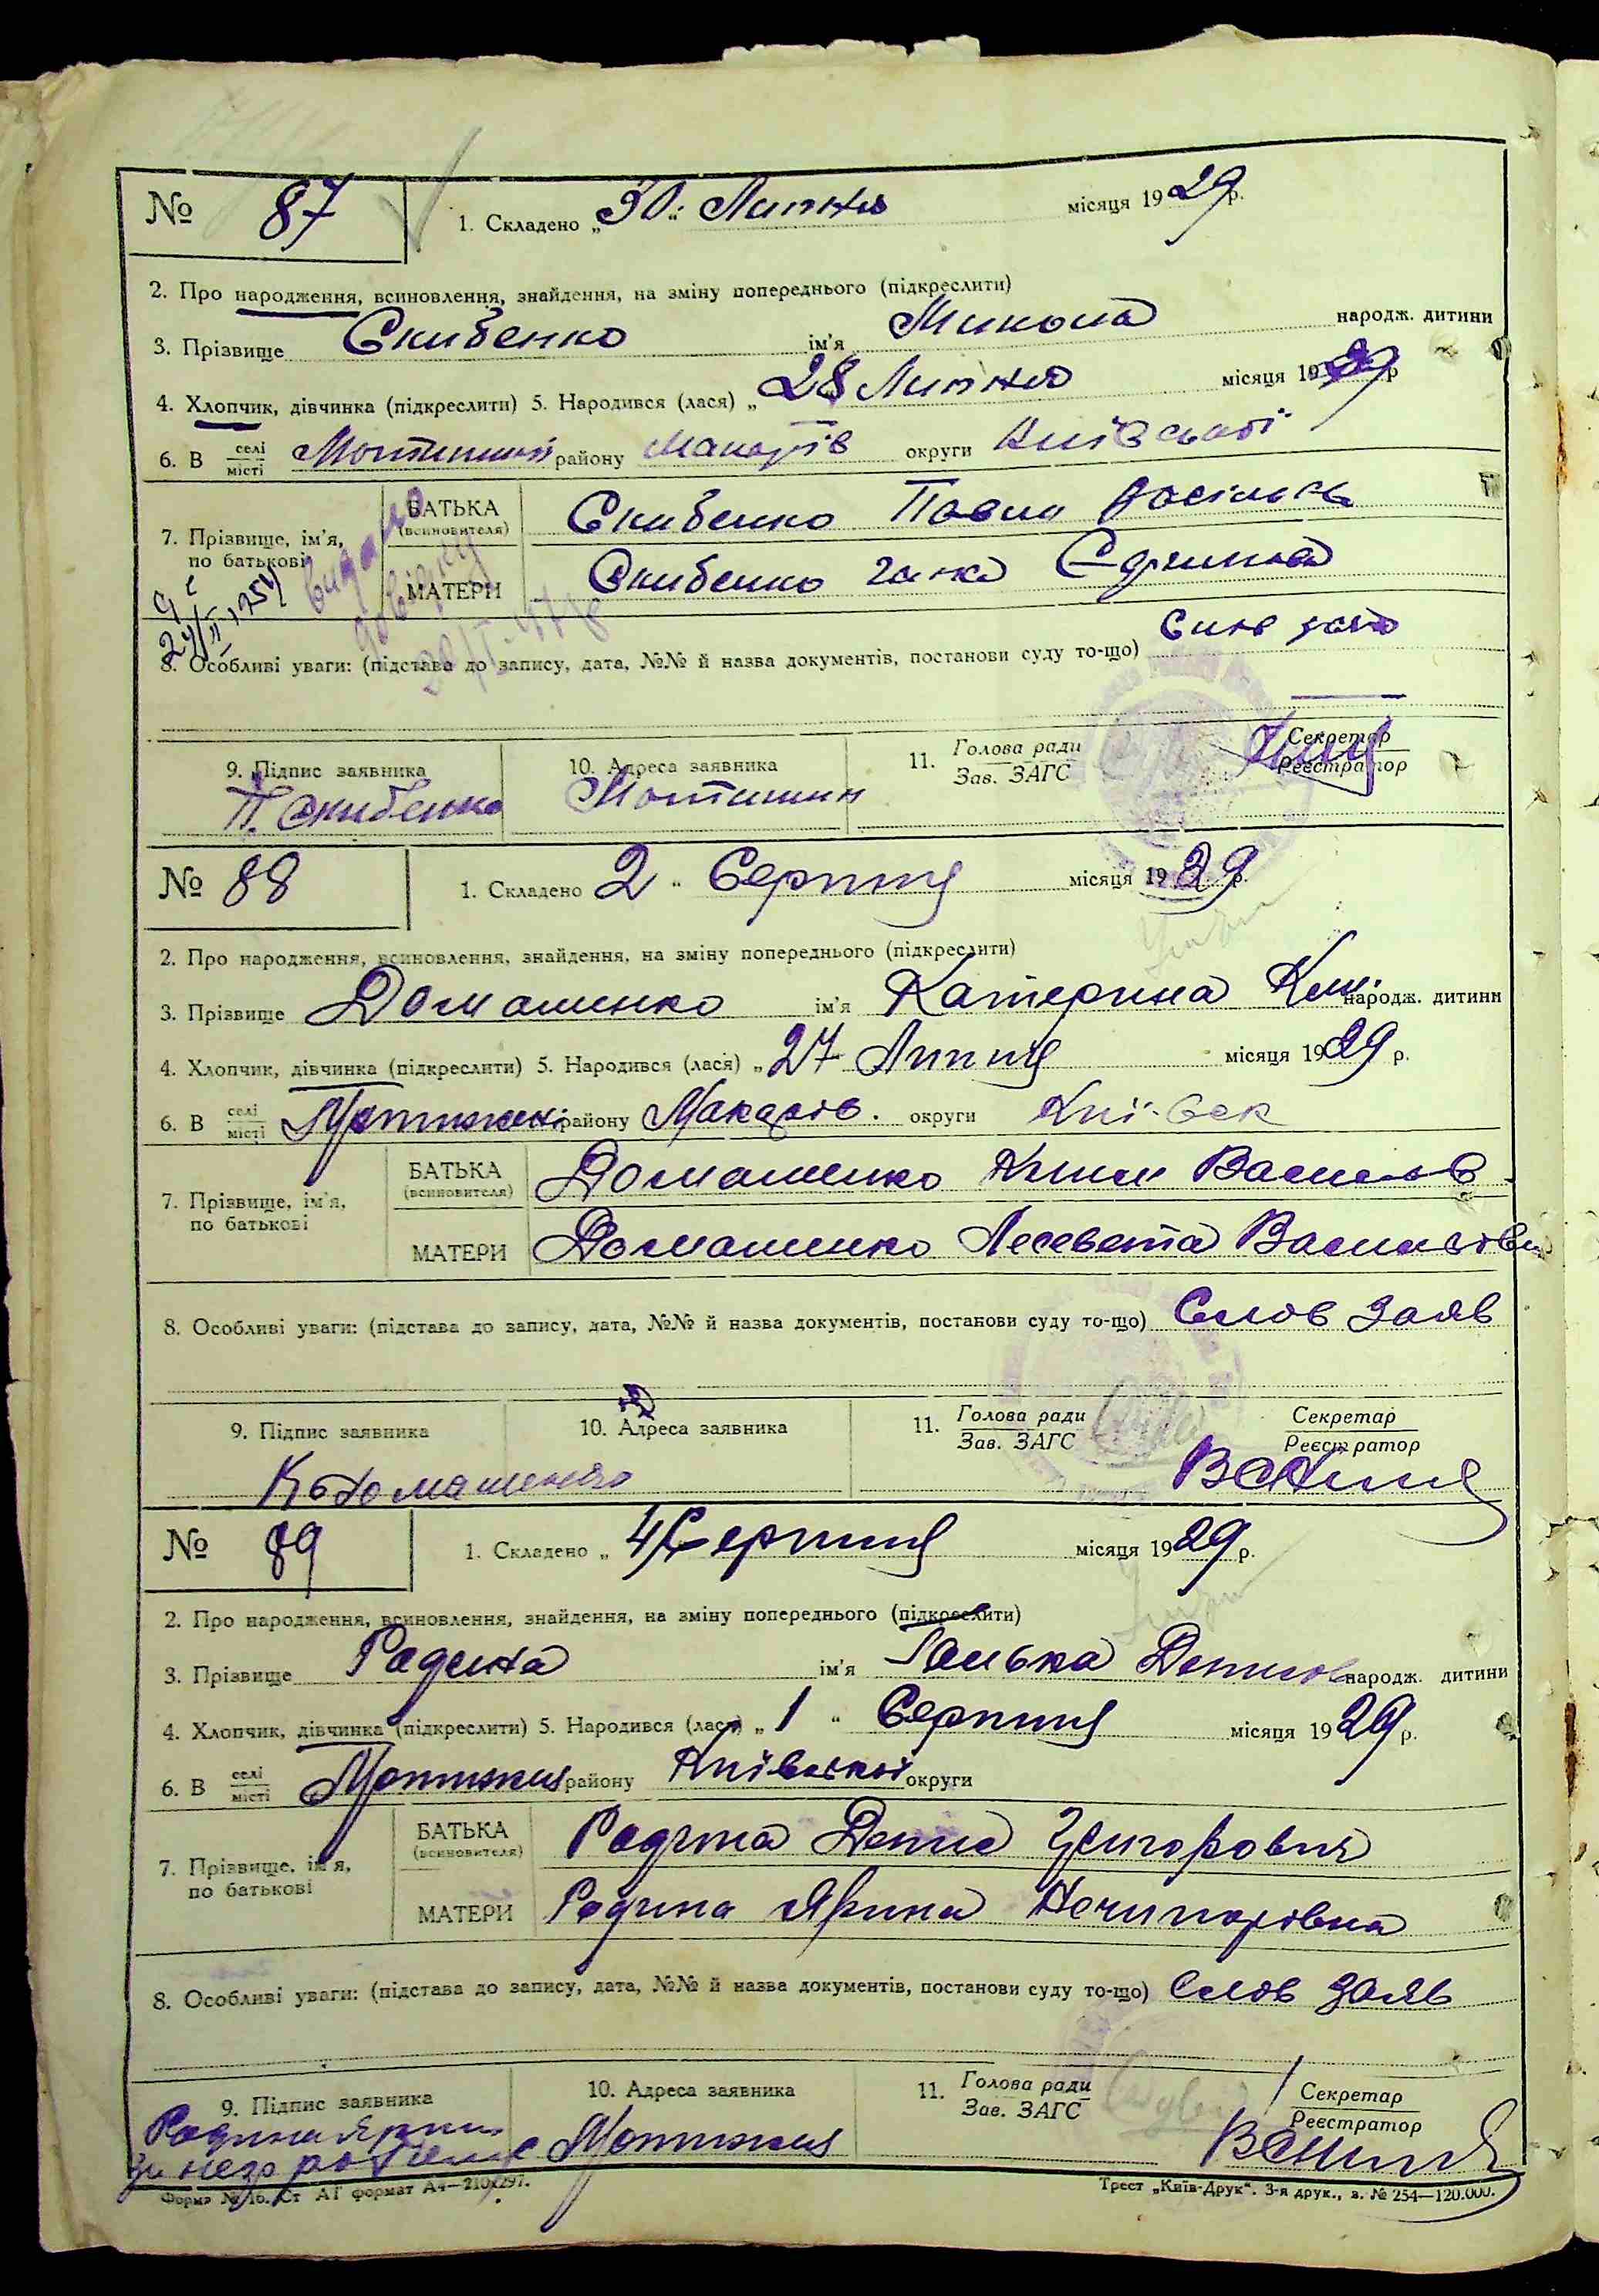 № 87 1. Складено „30“ Липня місяця 1929 р.
2. Про народження, всиновлення, знайдення, на зміну попереднього (підкреслити)
3. Прізвище Скибенко ім'я Микола народж. дитини
4. Хлопчик, дівчинка (підкреслити) 5. Народився (лася) „28 Липня місяця 1929 р
6. В селі/місті Мотижині району Макарів округи Київської
7. Прізвище, ім'я, по батькові
БАТЬКА (всиновителя) Скибенко Павло
МАТЕРИ Скибенко Ганка
видано довідку
8. Особливі уваги: (підстава до запису, дата, №№ й назва документів, постанови суду то-що) Слов заяв
9. Підпис заявника 10. Адреса заявника 11. Голова ради Секретар
Зав. ЗАГС Реєстратор
П. Скибенко Мотижин
№ 88 1. Складено 2 “ Серпня місяця 1929 р.
2. Про народження, всиновлення, знайдення, на зміну попереднього (підкреслити)
3. Прізвище Домашенко ім'я Катерина Клим. народж. дитини
4. Хлопчик, дівчинка (підкреслити) 5. Народився (лася) „27 Липня місяця 1929 р.
6. В селі/місті Мотижині району Макарів. округи Київськ
7. Прізвище, ім'я, по батькові
БАТЬКА (всиновителя) Домашенко Клим Васильов
МАТЕРИ Домашенко Лесевета Васильовн
8. Особливі уваги: (підстава до запису, дата, №№ й назва документів, постанови суду то-що) Слов заяв
9. Підпис заявника 10. Адреса заявника 11. Голова ради Секретар
Зав. ЗАГС Реєстратор
К Домашенко
№ 89 1. Складено „4 Серпня місяця 1929 р.
2. Про народження, всиновлення, знайдення, на зміну попереднього (підкреслити)
3. Прізвище Родина ім'я Ганька Денисов народж. дитини
4. Хлопчик, дівчинка (підкреслити) 5. Народився (лася) „1 “ Серпня місяця 1929 р.
6. В селі/місті Мотижин району Київської округи
7. Прізвище, ім'я, по батькові
БАТЬКА (всиновителя) Родина Денис Григорович
МАТЕРИ Родина Ярина Ничипорівна
8. Особливі уваги: (підстава до запису, дата, №№ й назва документів, постанови суду то-що) Слов заяв
9. Підпис заявника 10. Адреса заявника 11. Голова ради Секретар
Зав. ЗАГС Реєстратор
Родина Ярин Мотижин
Форма № 1б. Ст АГ формат А4—210×297. Трест „Київ-Друк“. 3-я друк., з. № 254—120.000.